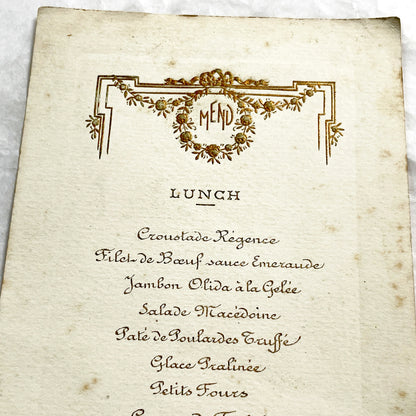 MENU
LUNCH
Croustade Régence
Filet de Bœuf sauce Emeraude
Jambon Olida à la Gelée
Salade Macédoine
Paté de Poulardes Truffé
Glace Pralinée
Petits Fours